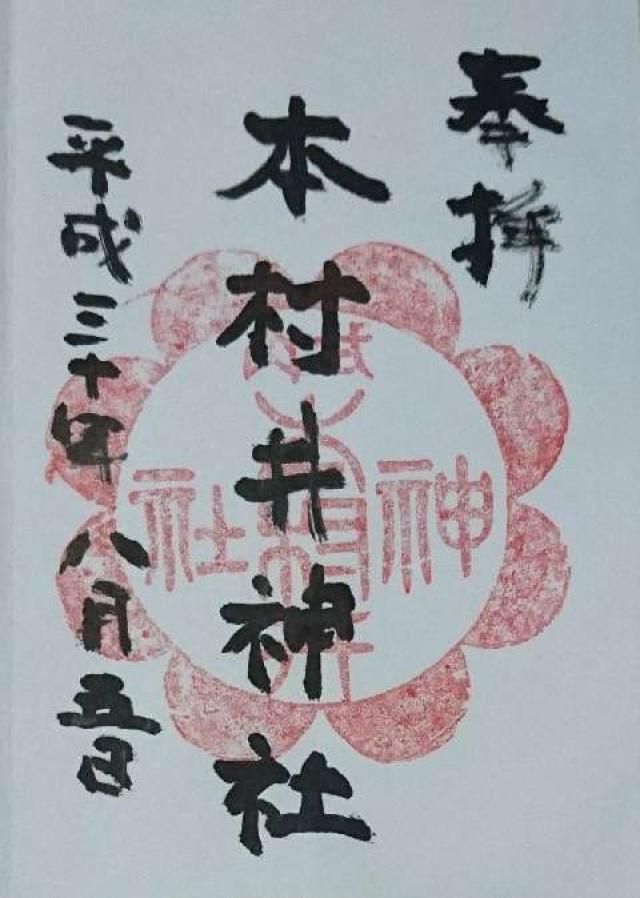 奉拝
本村井神社
平成三十年八月五日
神社